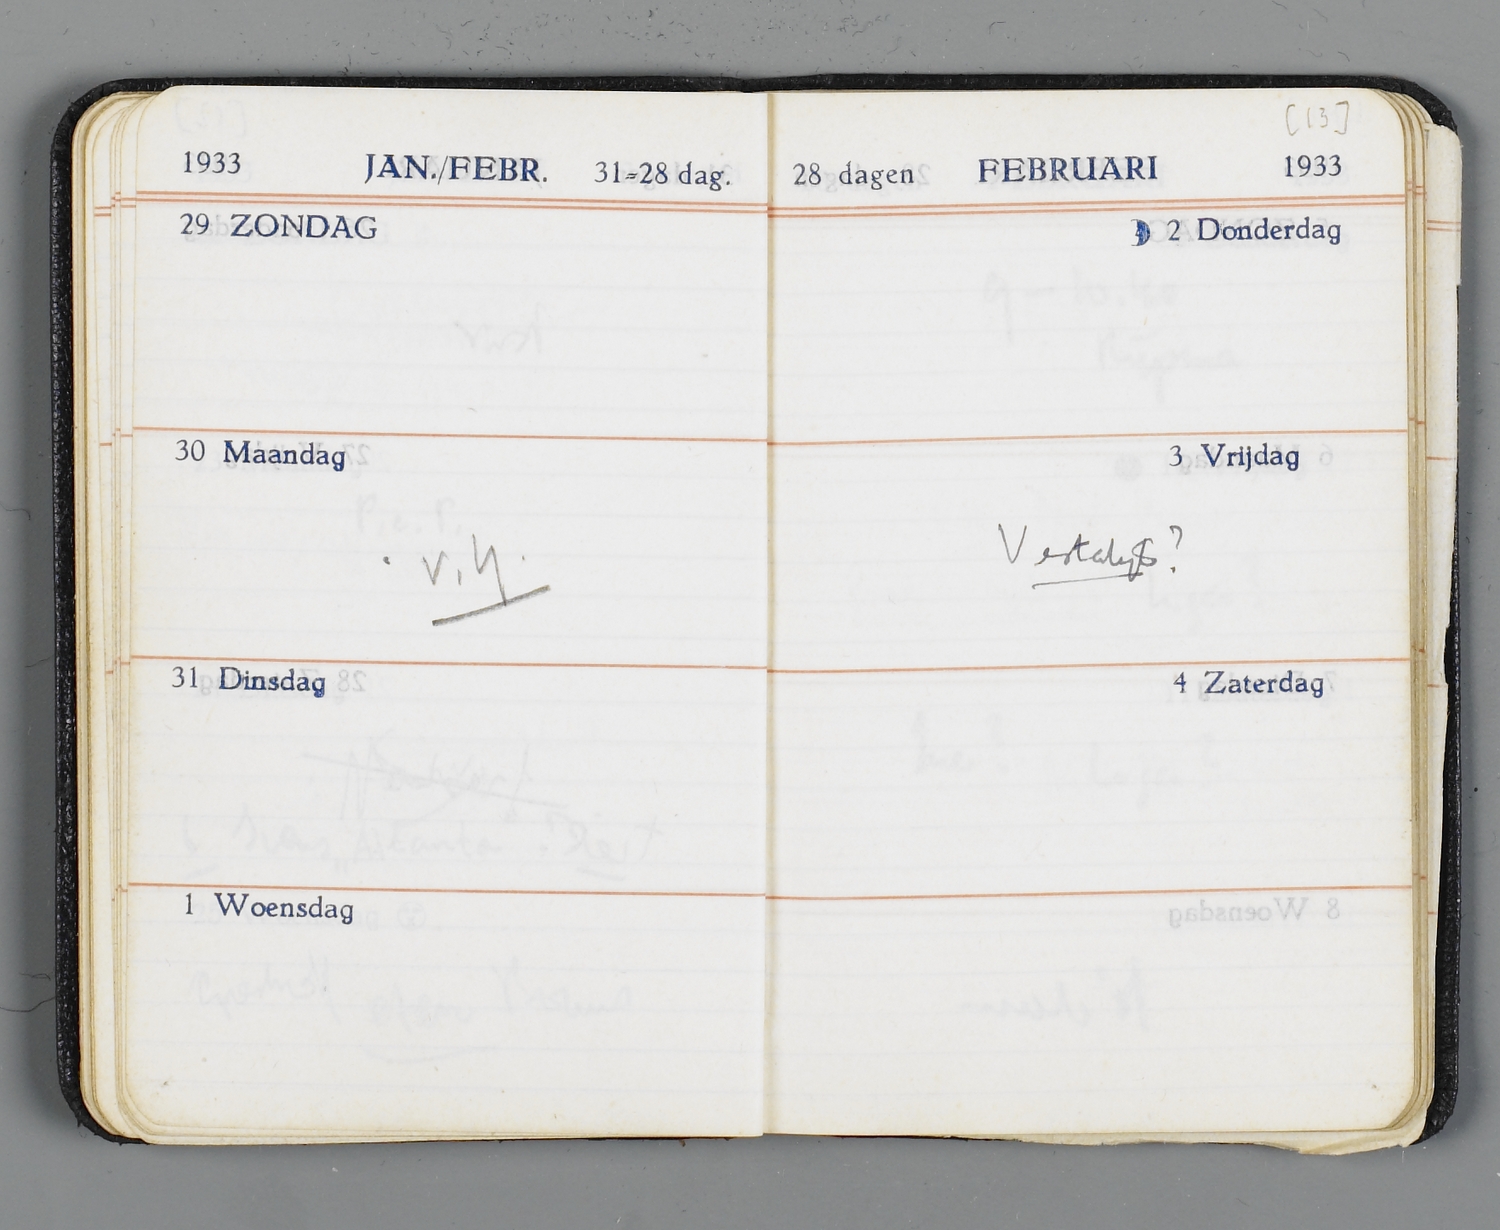 1933 JAN./FEBR. 31=28 dag.
29 ZONDAG
30 Maandag
v. H.
31 Dinsdag
1 Woensdag
[13]
28 dagen FEBRUARI 1933
2 Donderdag
3 Vrijdag
4 Zaterdag